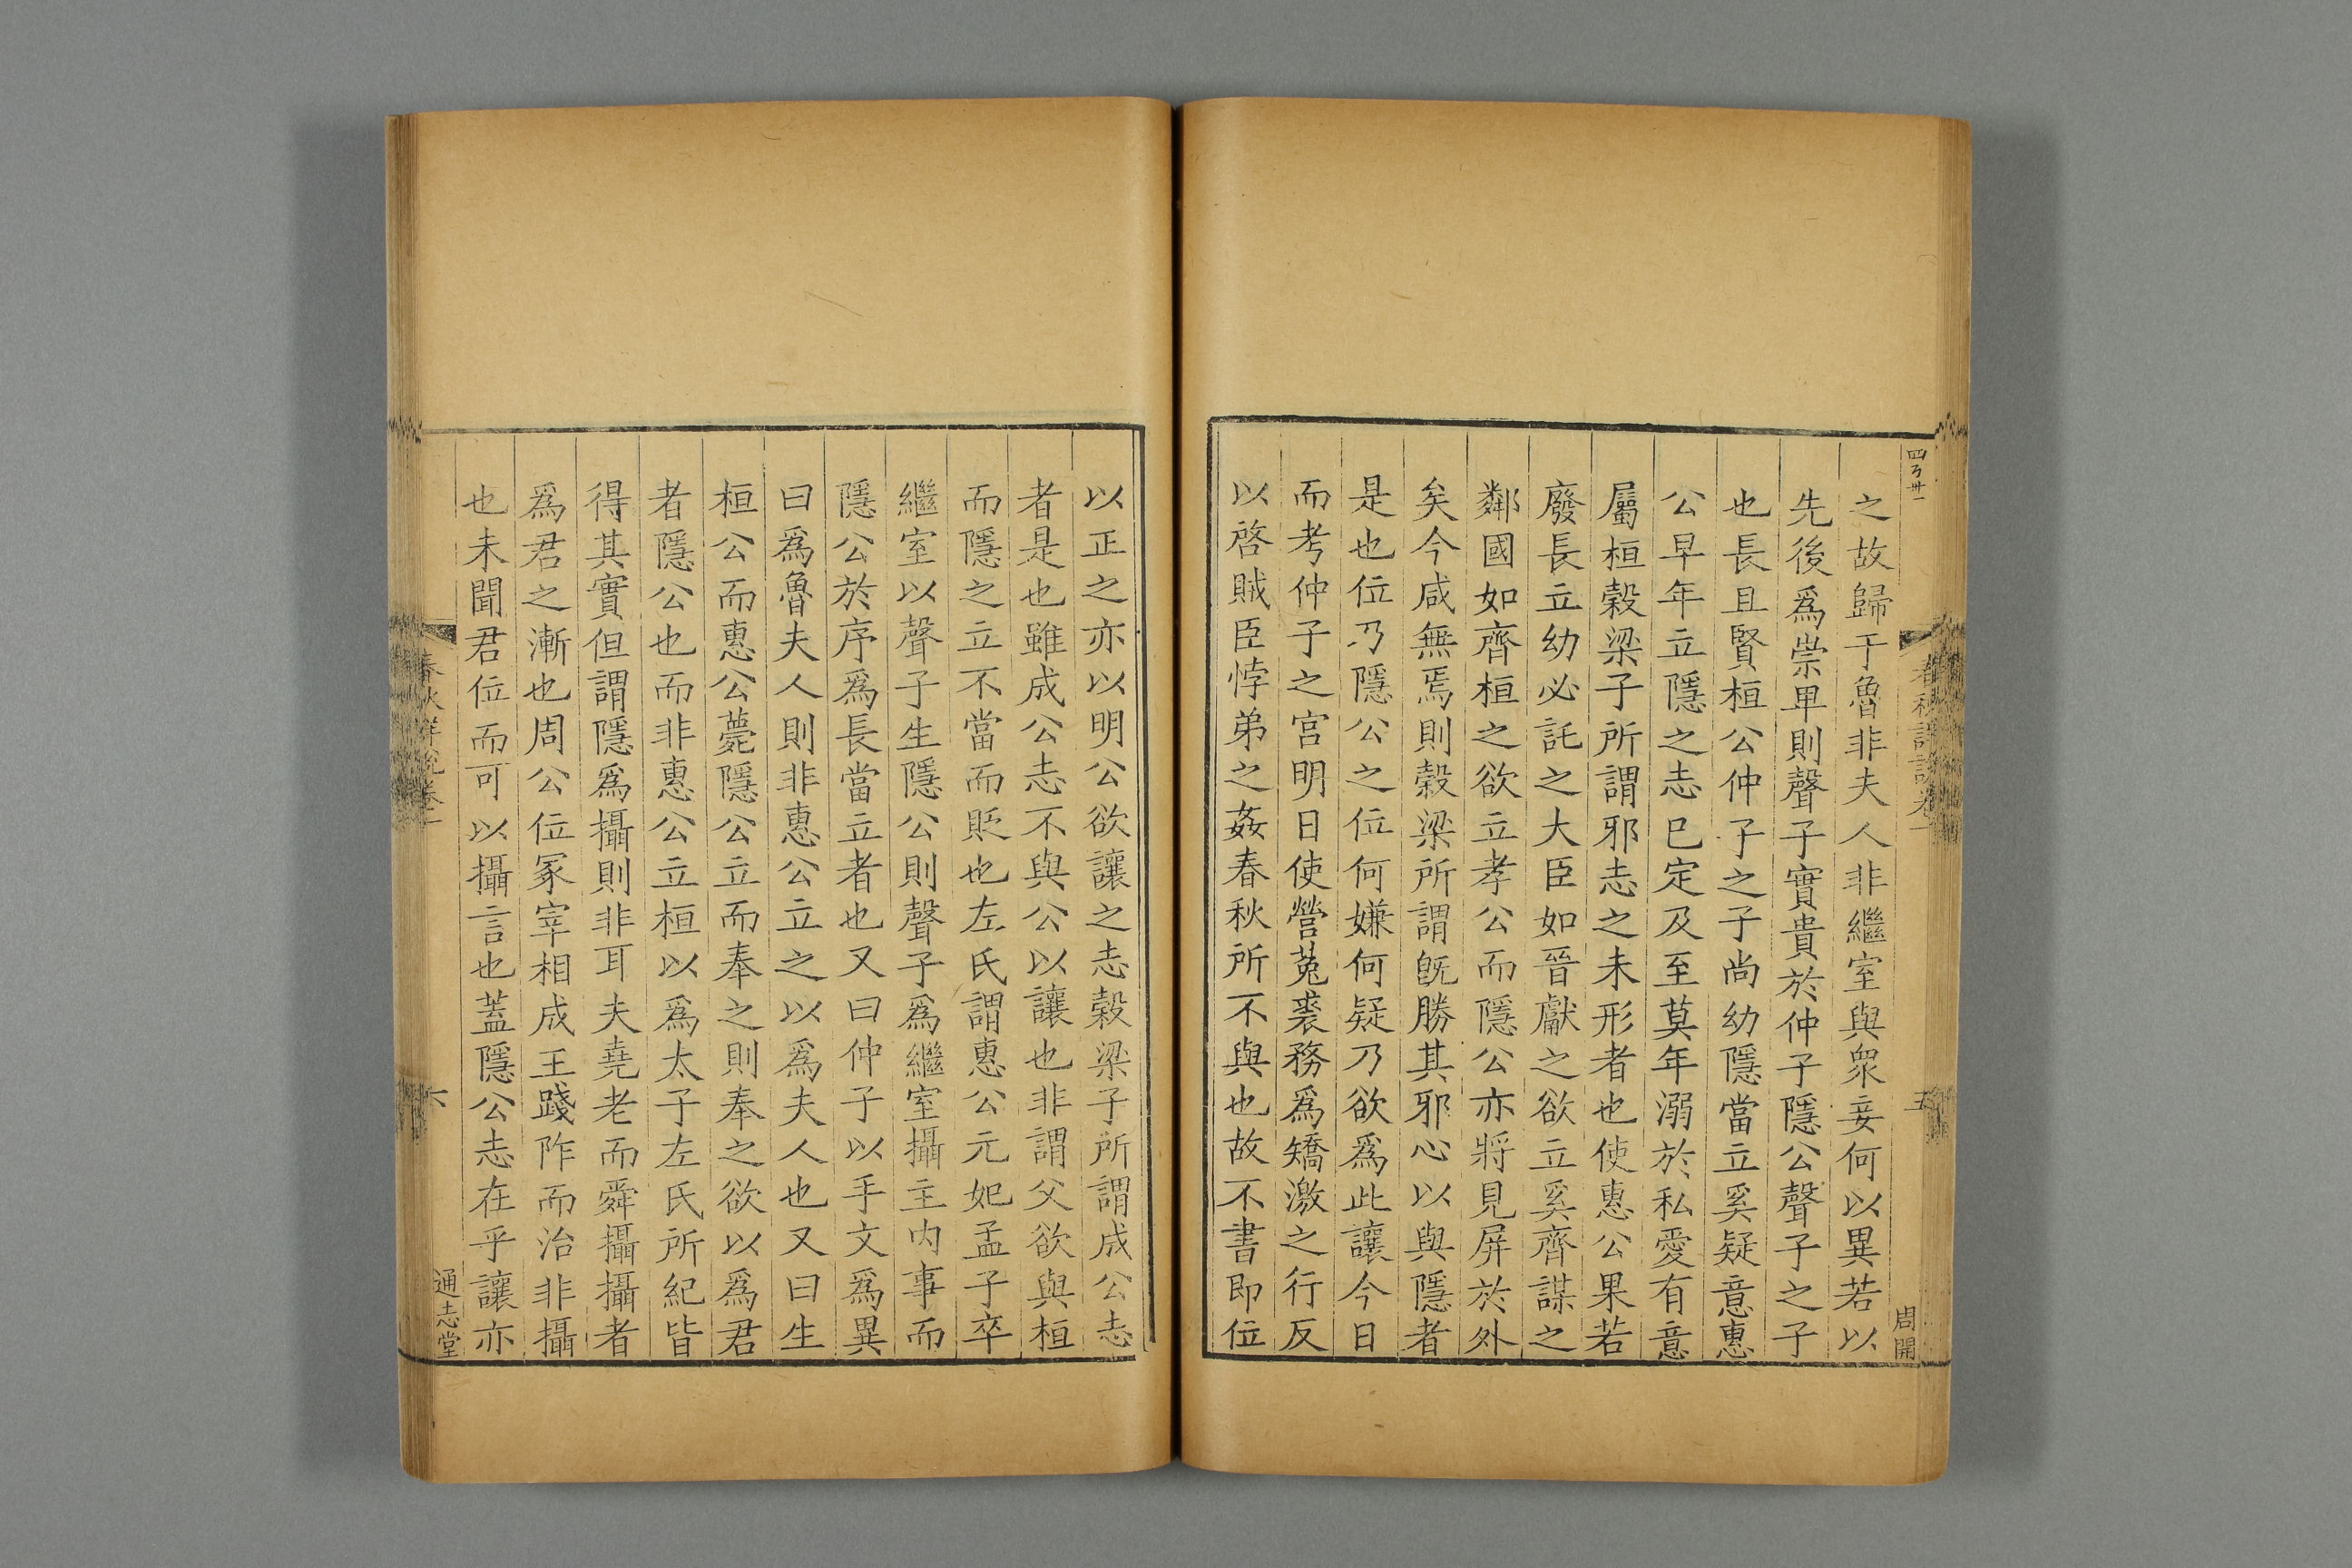 春秋詳說卷一
五
周開
之故歸于魯非夫人非繼室與衆妾何以異若以
先後爲崇卑則聲子實貴於仲子隱公聲子之子
也長且賢桓公仲子之子尚幼隱當立奚疑意惠
公早年立隱之志已定及至莫年溺於私愛有意
屬桓榖梁子所謂邪志之未形者也使惠公果若
廢長立幼必託之大臣如晉獻之欲立奚齊謀之
鄰國如齊桓之欲立孝公而隱公亦將見屏於外
矣今咸無焉則榖梁所謂旣勝其邪心以與隱者
是也位乃隱公之位何嫌何疑乃欲爲此讓今日
而考仲子之宮明日使營菟裘務爲矯激之行反
以啓賊臣悖弟之姦春秋所不與也故不書即位
以正之亦以明公欲讓之志榖梁子所謂成公志
者是也雖成公志不與公以讓也非謂父欲與桓
而隱之立不當而貶也左氏謂惠公元妃孟子卒
繼室以聲子生隱公則聲子爲繼室攝主内事而
隱公於序爲長當立者也又曰仲子以手文爲異
曰爲魯夫人則非惠公立之以爲夫人也又曰生
桓公而惠公薨隱公立而奉之則奉之欲以爲君
者隱公也而非惠公立桓以爲太子左氏所紀皆
得其實但謂隱爲攝則非耳夫堯老而舜攝攝者
爲君之漸也周公位冢宰相成王踐阼而治非攝
也未聞君位而可以攝言也蓋隱公志在乎讓亦
春秋詳說卷一
六
通志堂